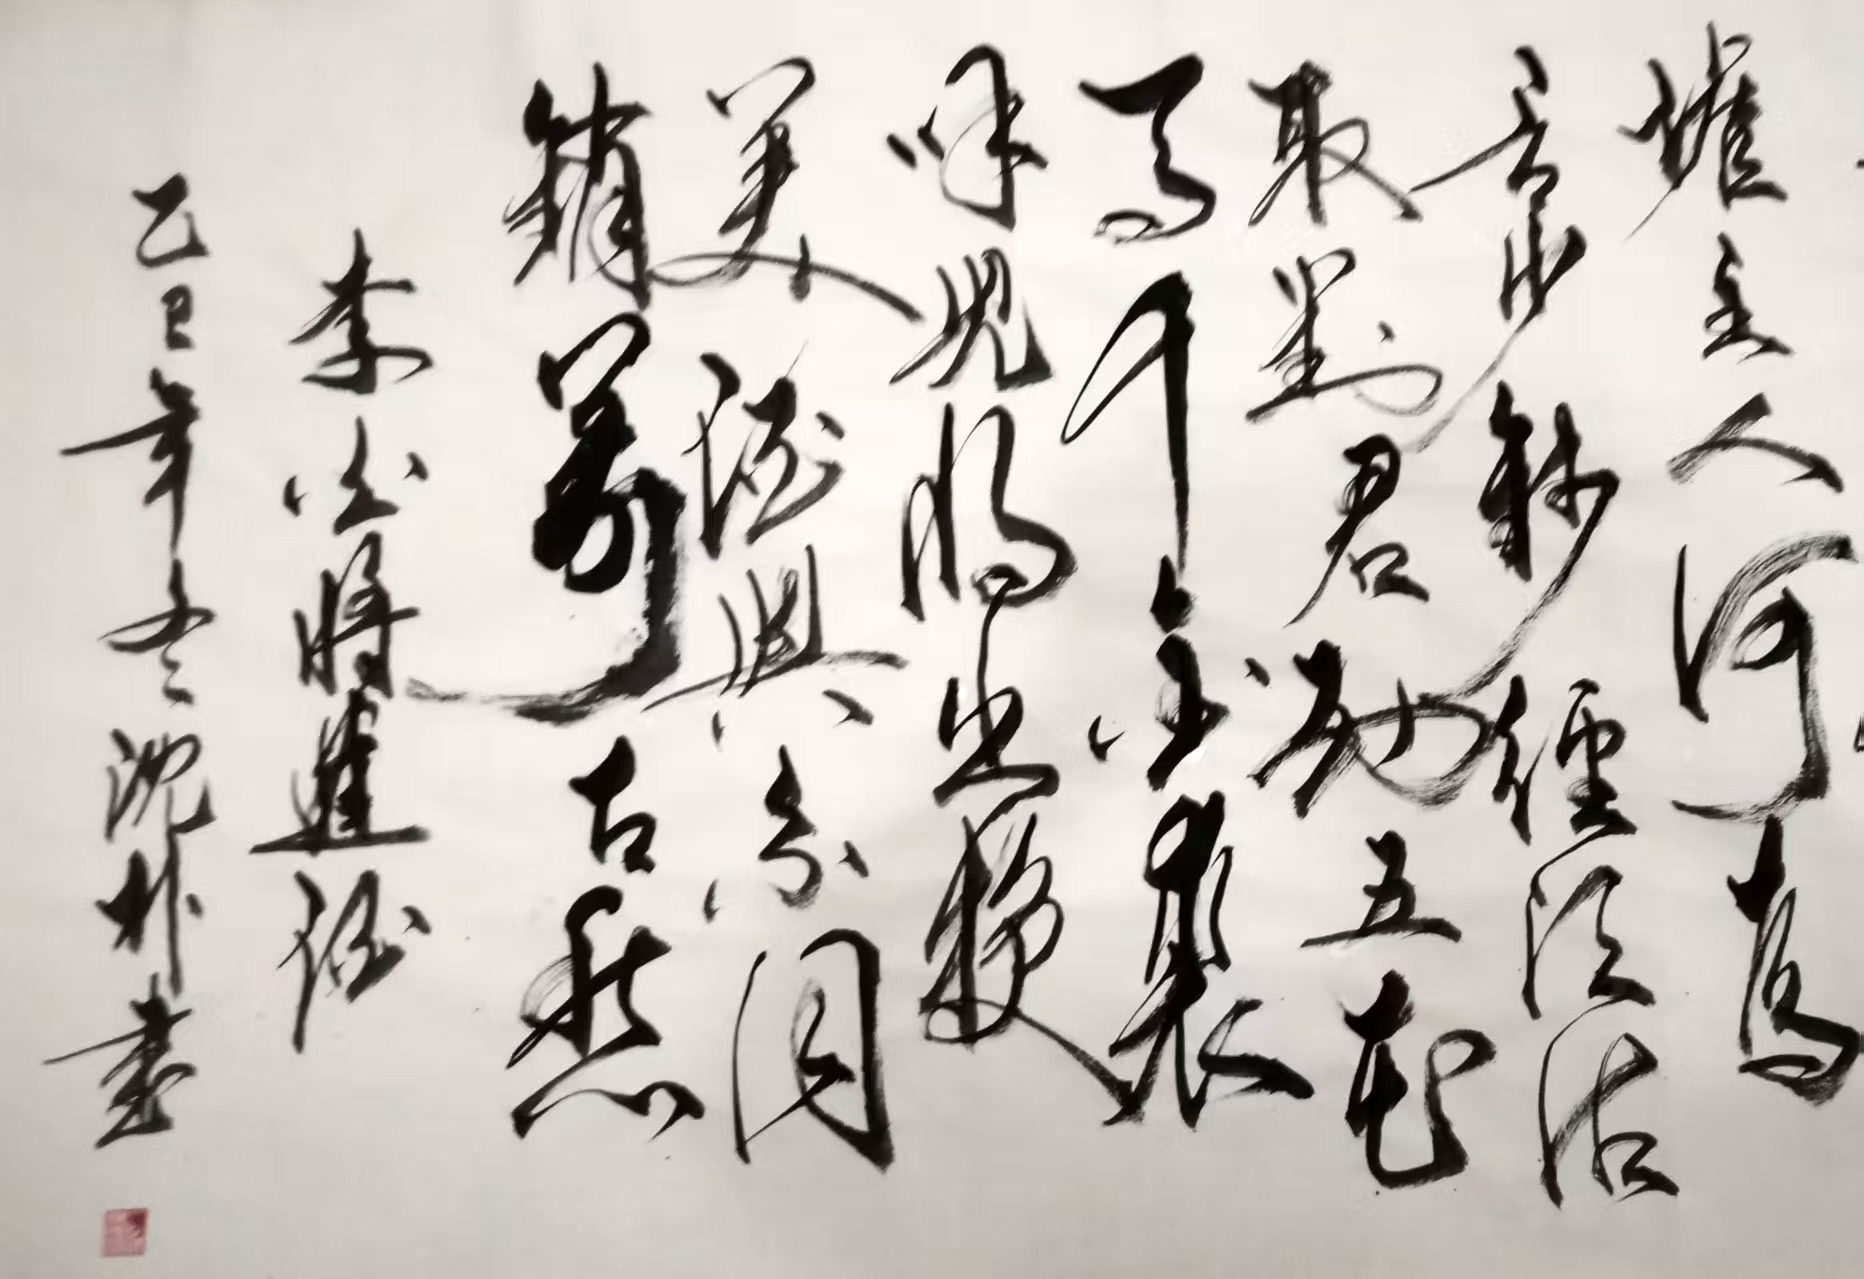 謔主人何為
言少錢徑須沽
取對君酌五花
馬千金裘
呼兒將出換
美酒與尔同
銷萬古愁
李白將進酒
乙巳年冬沈朴書